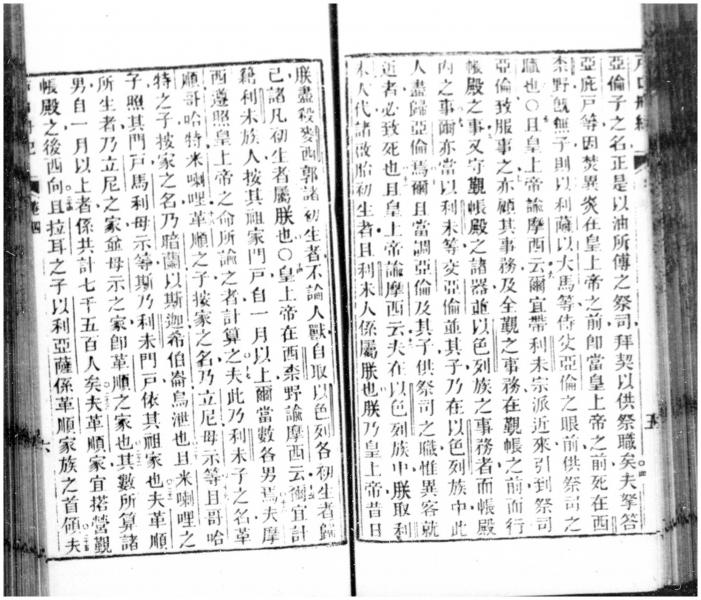 亞倫子之名正是以油所傅之祭司拜契以供祭職矣夫拏答
亞庇戸等因焚異炎在皇上帝之前卽當皇上帝之前死在西
柰野旣無子則以利薩以大馬等侍父亞倫之眼前供祭司之
職也〇且皇上帝諭摩西云爾宜帶利未宗派近來引到祭司
亞倫致服事之亦顧其事務及全觀之事務在觀帳之前而行
帳殿之事又守觀帳殿之諸器並以色列族之事務者而帳殿
內之事爾亦當以利未等交亞倫並其子乃在以色列族中此
人盡歸亞倫焉爾且當調亞倫及其子供祭司之職惟異客就
近者必致死也且皇上帝諭摩西云夫在以色列族中朕取利
未人代諸啟胎初生者且利未人係屬朕也朕乃皇上帝昔日
朕盡殺麥西郭諸初生者不論人獸自取以色列各初生者歸
己諸凡初生者屬朕也〇皇上帝在西柰野諭摩西云爾宜計
籍利未族人按其祖家門戸自一月以上爾當數各男焉夫摩
西遵照皇上帝之命所諭之者計算之夫此乃利未子之名革
順哥哈特米喇哩革順之子按家之名乃立尼母示等且哥哈
特之子按家之名乃暗蘭以斯迦希伯崙烏泄也且米喇哩之
子照其門戸馬利母示等斯乃利未門戸依其祖家也夫革順
所生者乃立尼之家並母示之家卽革順之家也其數所算諸
男自一月以上者係共計七千五百人矣夫革順家宜搭營觀
帳殿之後西向且拉耳之子以利亞薩係革順家族之首領夫